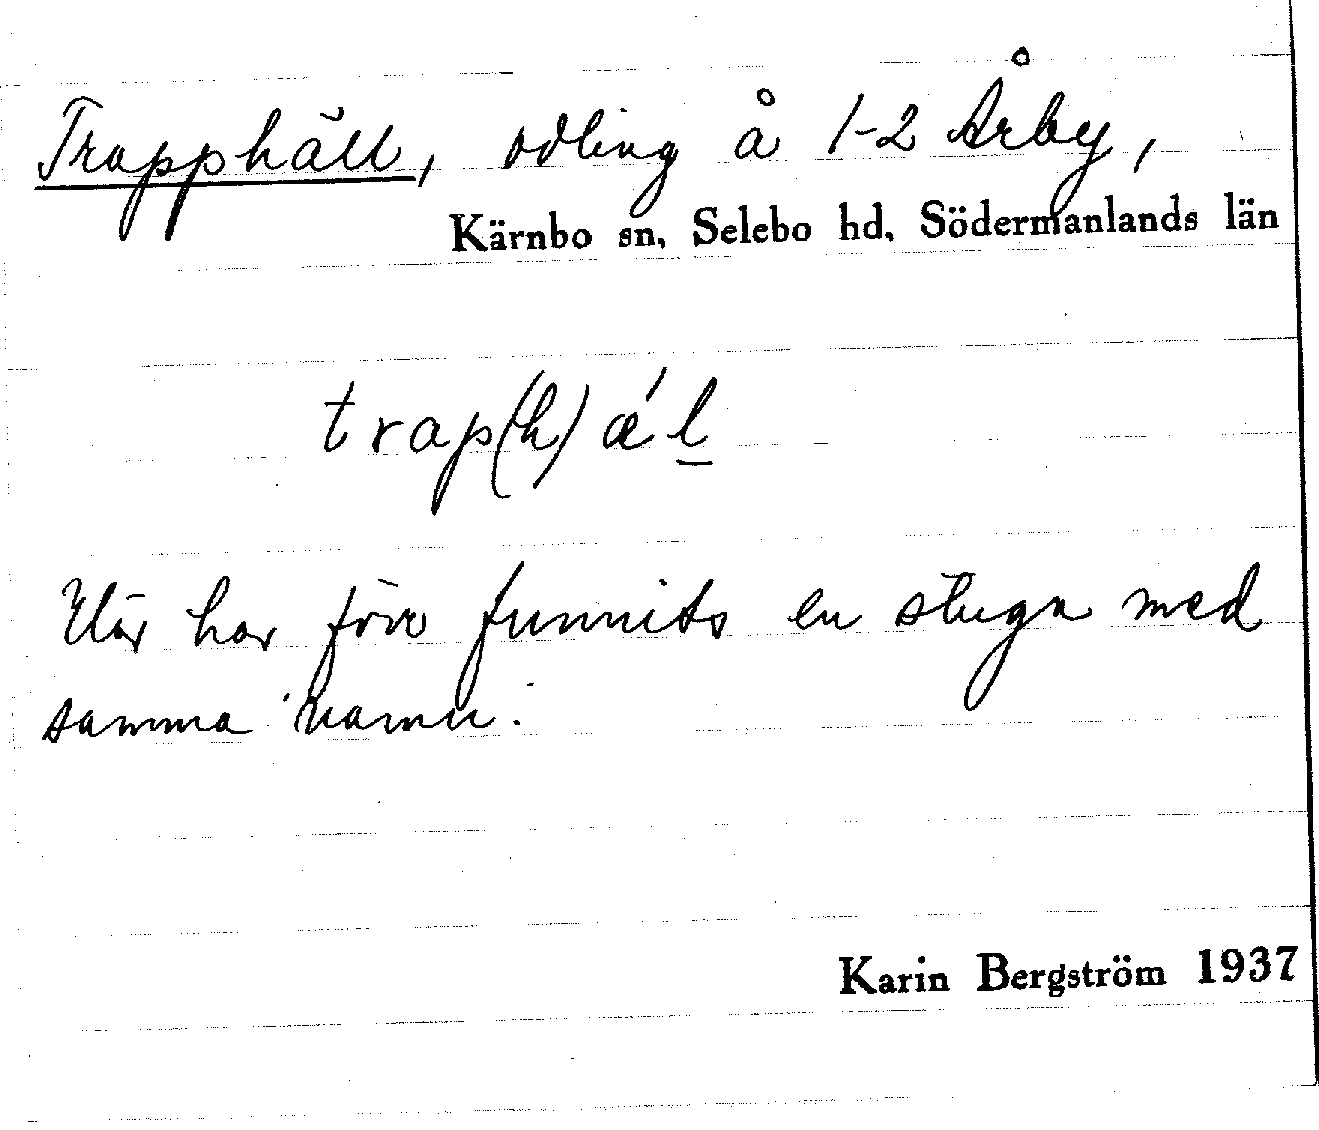 Trapphäll, odling å 1-2 Årby,
Kärnbo sn, Selebo hd, Södermanlands län
trap(h)ǽl̲
Här har förr funnits en stuga med
samma namn.
Karin Bergström 1937